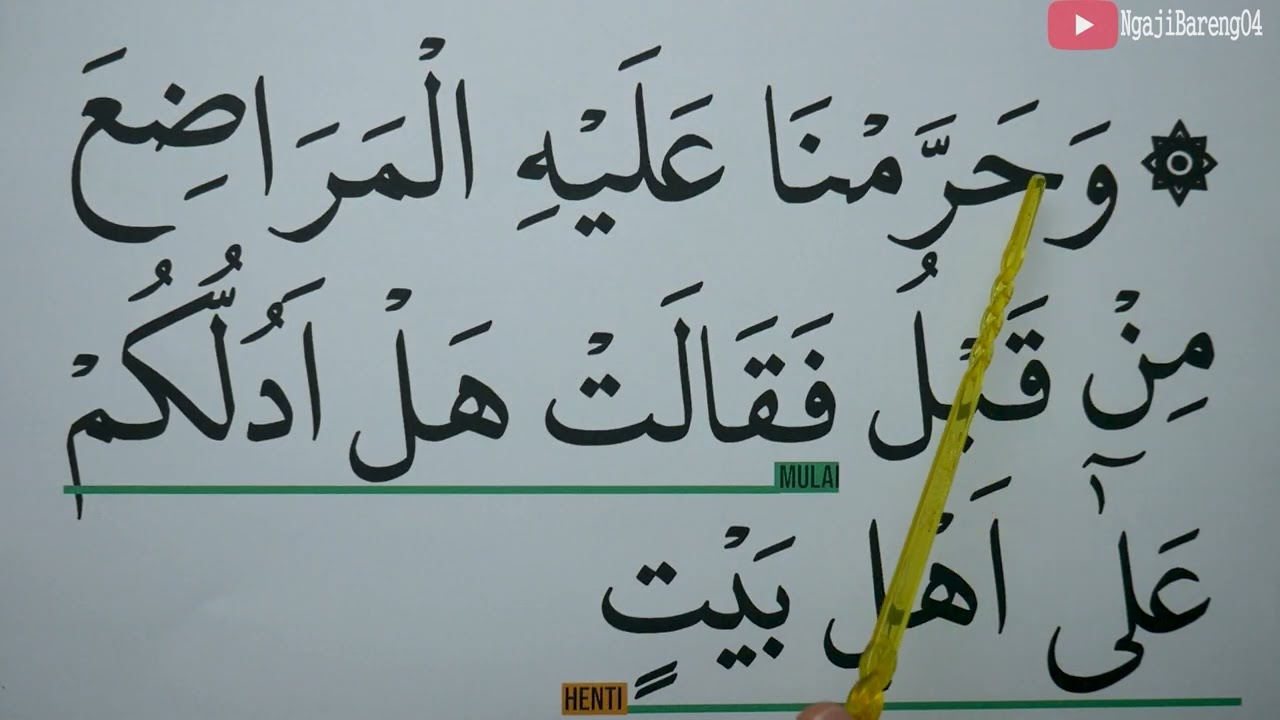 NgajiBareng04
۞ وَحَرَّمْنَا عَلَيْهِ الْمَرَاضِعَ
مِنْ قَبْلُ فَقَالَتْ هَلْ اَدُلُّكُمْ
MULAI
عَلٰٓى اَهْلِ بَيْتٍ
HENTI